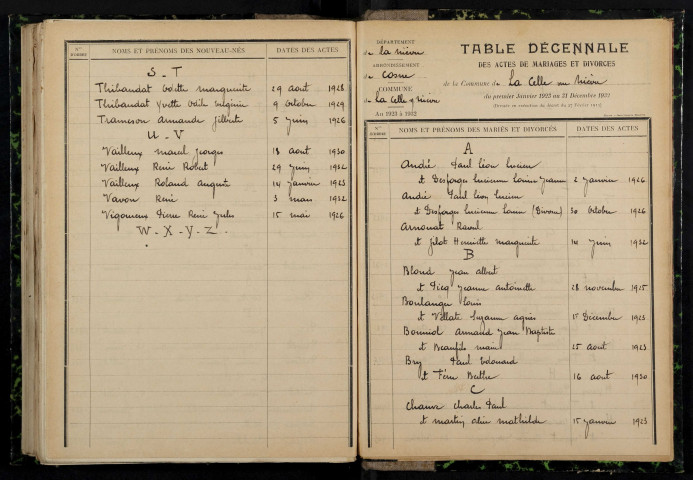 Nos D'ORDRE NOMS ET PRÉNOMS DES NOUVEAU-NÉS DATES DES ACTES
S - T
Thibaudat Odette marguerite 29 août 1928
Thibaudat Yvette Odile 9 octobre 1929
Trameson Armande Gilberte 5 juin 1926
U - V
Vailleux marcel georges 18 août 1930
Vailleux René Robert 29 juin 1932
Vailleux Roland August 14 janvier 1923
Vavon René 3 mars 1932
Vigoureux Pierre René Jules 15 mai 1926
W - X - Y - Z
DÉPARTEMENT
de la nièvre
ARRONDISSEMENT
de Cosne
COMMUNE
de La Celle s/ nièvre
An 1923 à 1932
TABLE DÉCENNALE
DES ACTES DE MARIAGES ET DIVORCES
de la Commune de La Celle sur nièvre
du premier Janvier 1923 au 31 Décembre 1932
Nos D'ORDRE NOMS ET PRÉNOMS DES MARIÉS ET DIVORCÉS DATES DES ACTES
A
André Paul Léon Lucien
et Desforges Lucienne Louise Jeanne 2 janvier 1926
André Paul Léon Lucien
et Desforges Lucienne Louise (Divorce) 30 octobre 1926
Arnouat Raoul
et Henriette marguerite 14 juin 1932
B
Blond Jean albert
et Jeanne antoinette 28 novembre 1925
Boulanger Louis
et Suzanne agnès 15 Décembre 1923
Armand Jean Baptiste
et Beaufils marie 25 août 1923
Bry Paul Edouard
et Berthe 16 août 1930
C
Chauve charles Paul
et martin mathilde 15 janvier 1923